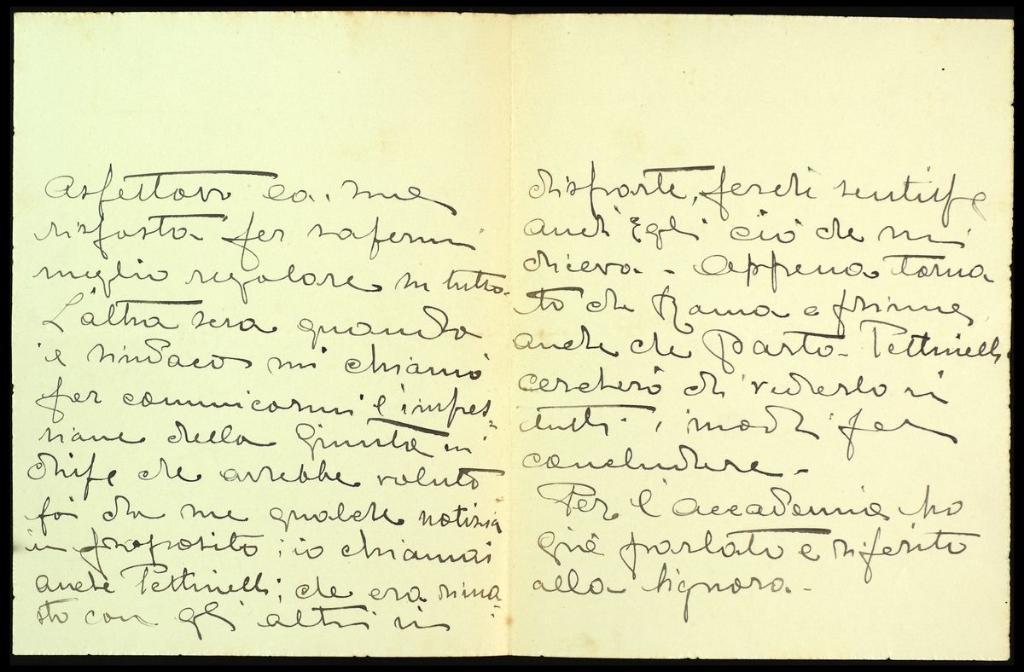 Aspettavo la sua
risposta per sapermi
meglio regolare su tutto.
L'altra sera quando
il sindaco mi chiamò
per comunicarmi l'impres-
sione della Giunta mi
disse che avrebbe voluto
poi da me qualche notizia
in proposito; io chiamai
anche Pettinelli; che era rima-
sto con gli altri in
disparte, perché sentisse
anch'Egli ciò che mi
diceva. Appena torna
to da Roma e prima
anche che parta Pettinelli
cercherò di vederlo in
tutti i modi per
concludere.
Per l'accademia ho
già parlato e riferito
alla Signora.